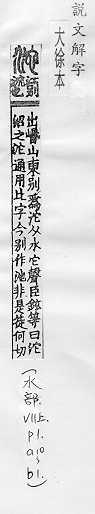 説文解字
大徐本
出㟭山東別爲沱从水它聲臣鉉等曰沱
沼之沱通用此字今別作池非是徒何切
(水部.
VII上.
p1.
a10
~
b1.)